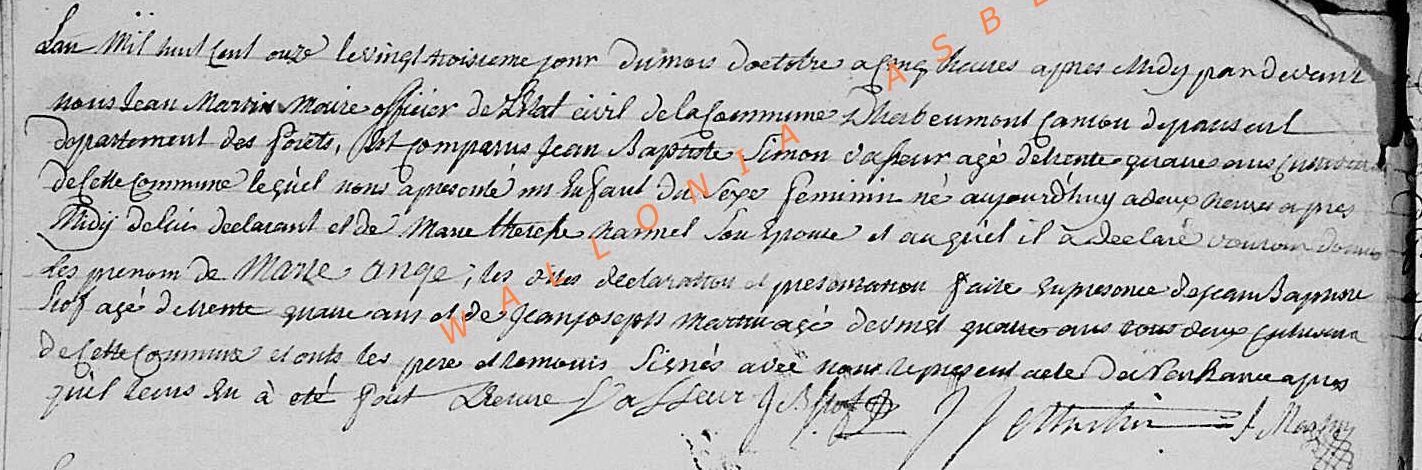 Lan Mil huit Cent onze le vingt troisieme jour du mois doctobre a Cinq heures apres Midy par devant
nous Jean Martin Maire officier de L'Etat civil de la Commune Dherbeumont Canton de paliseul
departement des forêts, Est Comparus Jean Baptiste Simon Vasseur agé de trente quatre ans Cultivateur
de Cette Commune lequel nous a presenté un Enfant du Sexe feminin né aujourd'huy a deux heures apres
Midy de lui declarant et de Marie therese harmel Son Epouse et auquel il à declaré vouloir donner
Les prenom de Marie Ange; les dites declaration et presentation faite En presence de Jean Baptiste
agé de trente quatre ans et de Jean joseph Martin agé de vingt quatre ans tous deux Cultivateur
de Cette Commune et onts les pere et temouis Signés avec nous le present acte de Naissance apres
qu'il leurs En à été fait Lecture Vasseur J B J J Martin J Martin
WALLONIA ASBL